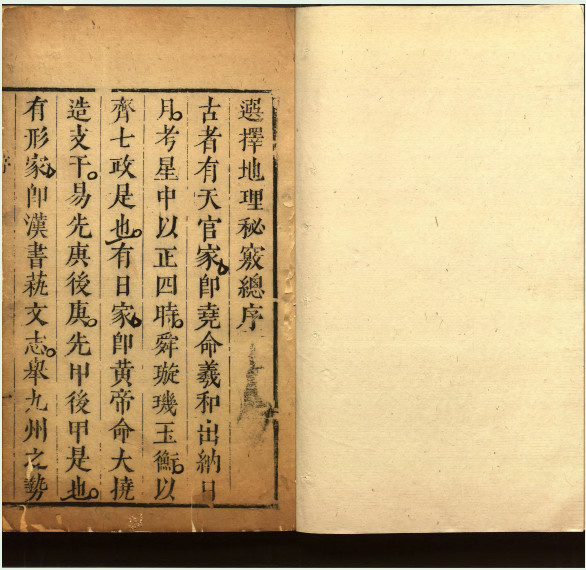 選擇地理秘竅總序
古者有天官家即堯命羲和出納日
月考星中以正四時舜璇璣玉衡以
齊七政是也有日家即黃帝命大撓
造支干易先庚後庚先甲後甲是也
有形家即漢書藝文志舉九州之勢